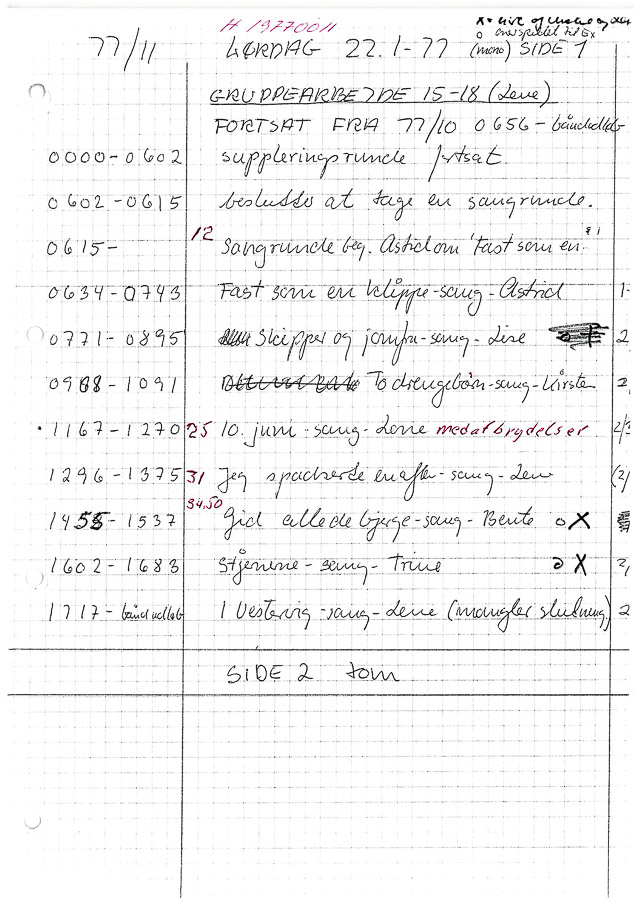 H 13770011
77/11 LØRDAG 22.1-77 (mono) SIDE 1
GRUPPEARBEJDE 15-18 (Lene)
FORTSAT FRA 77/10 0656-båndudløb
0000-0602 suppleringsrunde fortsat.
0602-0615 beslutter at tage en sangrunde.
0615- 12 Sangrunde beg. Astrid om "Fast som en"
0634-0743 Fast som en klippe-sang-Astrid 1
0771-0895 Skipper og jomfru-sang-Lise 2
0968-1091 To drengebørn-sang-Kirsten 2
1167-1270 25 10. juni-sang-Lone med afbrydelser 2/3
1296-1375 31 Jeg spadserte en aften-sang-Lene (2/
34.50
1455-1537 Gid alle de bjerge-sang-Bente o X
1602-1683 Stjernerne-sang-Trine o X 2/
1717-båndudløb I Vestervig-sang-Lene (mangler slutning) 2
SIDE 2 tom